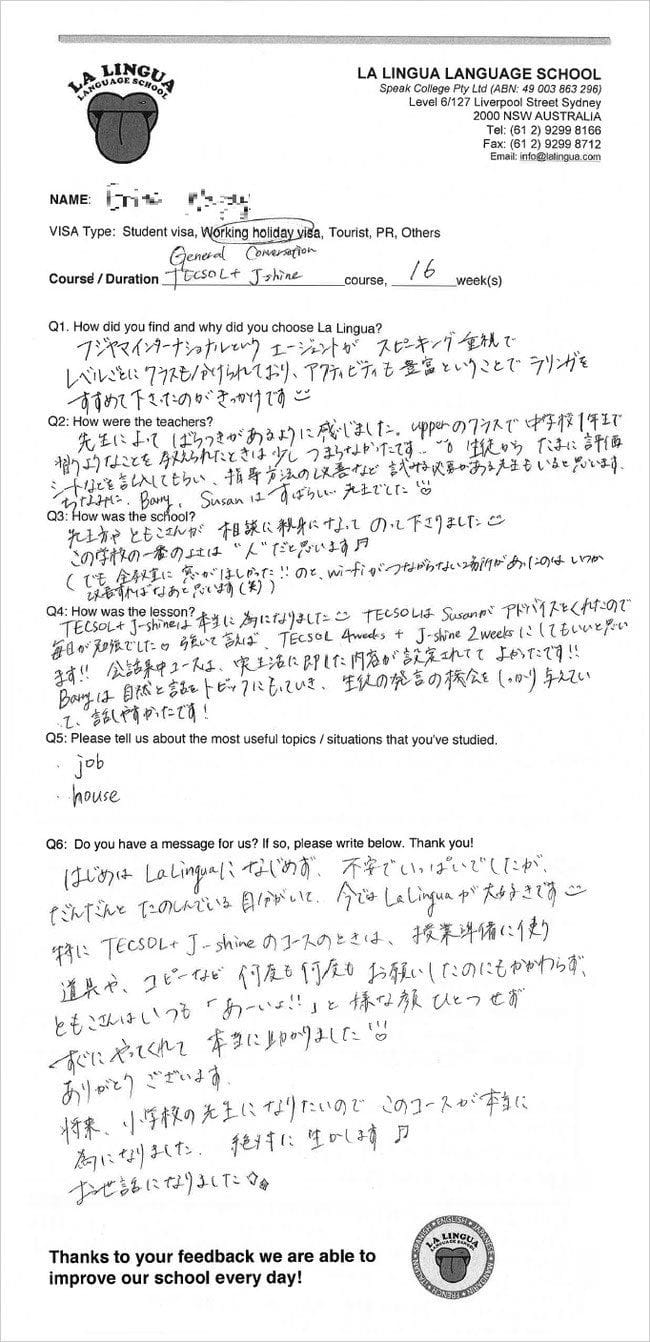 LA LINGUA
LANGUAGE SCHOOL
LA LINGUA LANGUAGE SCHOOL
Speak College Pty Ltd (ABN: 49 003 863 296)
Level 6/127 Liverpool Street Sydney
2000 NSW AUSTRALIA
Tel: (61 2) 9299 8166
Fax: (61 2) 9299 8712
Email: info@lalingua.com
NAME:
VISA Type: Student visa, Working holiday visa, Tourist, PR, Others
General Conversation
Course / Duration TECSOL + J-shine course, 16 week(s)
Q1. How did you find and why did you choose La Lingua?
フジヤマインターナショナルという エージェントが スピーキング重視で
レベルごとに クラスも分けられており、アクティビティも 豊富ということで ラリンガを
すすめて下さたのがきっかけです
Q2: How were the teachers?
先生によって ばらつきがあるように感じました。upperのクラスで 中学校1年生で
習うようなことを 教えられたときは 少し つまらなかったです… 生徒から たまに 評価
シートなどを記入してもらい、指導方法の改善など 試みる必要がある先生もいると思います。
ちなみに、Barry, Susanは すばらしい 先生でした
Q3: How was the school?
先生方や ともこさんが 相談に親身になって のって下さりました
この学校の一番のよさは "人" だと思います♬
(でも 全教室に 窓がほしかった!!のと、wi-fiが つながらない場所があったのは いつか
改善すればなあと思います(笑))
Q4: How was the lesson?
TECSOL+ J-shineは 本当に 為になりました TECSOLは Susanが アドバイスをくれたので
毎日が勉強でした 強いて言えば、TECSOL 4weeks + J-shine 2weeksにしてもいいと思い
ます!! 会話集中コースは、実生活に即した内容が 設定されてて よかったです!!
Barryは 自然と話をトピックにもっていき、生徒の発言の機会を しっかり与えてい
て、話しやすかったです!
Q5: Please tell us about the most useful topics / situations that you've studied.
・job
・house
Q6: Do you have a message for us? If so, please write below. Thank you!
はじめは La Linguaに なじめず、不安でいっぱいでしたが、
だんだんと たのしんでいる 自分がいて、今では La Linguaが 大好きです
特に TECSOL+ J-shineのコースのときは、授業準備に使う
道具や、コピーなど 何度も何度も お願いしたのにもかかわらず、
ともこさんはいつも 「あーいよ!!」と 嫌な顔 ひとつせず
すぐに やってくれて 本当に助かりました
ありがとう ございます。
将来、小学校の先生になりたいので このコースが 本当に
為になりました。絶対に 生かします♬
お世話になりました
Thanks to your feedback we are able to
improve our school every day!
LA LINGUA
LANGUAGE SCHOOL